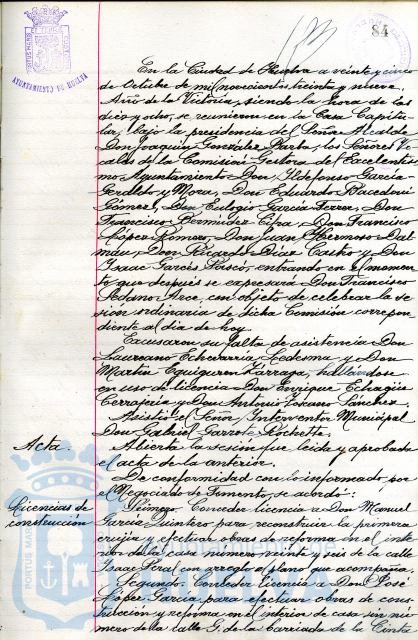 84
AYUNTAMIENTO DE HUELVA
En la Ciudad de Huelva a veinte y cinco
de Octubre de mil novecientos treinta y nueve.
Año de la Victoria, siendo la hora de las
diez y ocho, se reunieron en la Casa Capitu-
lar, bajo la presidencia del Señor Alcalde
Don Joaquín González Barba, los Señores Vo-
cales de la Comisión Gestora del Excelentísi-
mo Ayuntamiento Don Ildefonso García-
Geraldo y Mora, Don Eduardo Macedonio
Gómez, Don Eulogio García Ferrer, Don
Francisco Bermúdez Don Francisco
López Romero, Don Juan Hermoso Dal-
mau, Don Ricardo Díaz Castro y Don
Isaac Garcés Pascó, entrando en el momen-
to que después se expresará Don Francisco
Sedano Arce, con objeto de celebrar la se-
sión ordinaria de dicha Comisión correspon-
diente al día de hoy.
Excusaron su falta de asistencia Don
Laureano Echevarría Ledesma y Don
Martín Eguiguren Lárraga, hallándose
en uso de licencia Don Enrique
Don Antonio Sánchez.
Asistió el Señor Interventor Municipal
Don Gabriel Garrote
Acta. Abierta la sesión fue leída y aprobada
el acta de la anterior.
De conformidad con lo informado por
el Negociado de Fomento, se acordó:
Licencias de construcción
Primero. Conceder licencia a Don Manuel
García Quintero para reconstruir la primera
crujía y efectuar obras de reforma en el inte-
rior de la casa número veinte y seis de la calle
Isaac Peral con arreglo al plano que acompaña.
Segundo. Conceder licencia a Don José
López García para efectuar obras de cons-
trucción y reforma en el interior de casa sin nú-
mero de la calle G. de la barriada de la Cinta
PORTUS MARIS